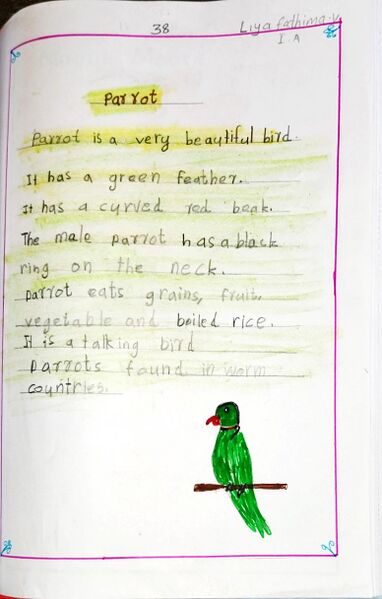 38
Liya fathima.V
I.A
Parrot
Parrot is a very beautiful bird.
It has a green feather.
It has a curved red beak.
The male parrot has a black
ring on the neck.
parrot eats grains, fruit,
vegetable and boiled rice.
It is a talking bird
parrots found in worm
countries.